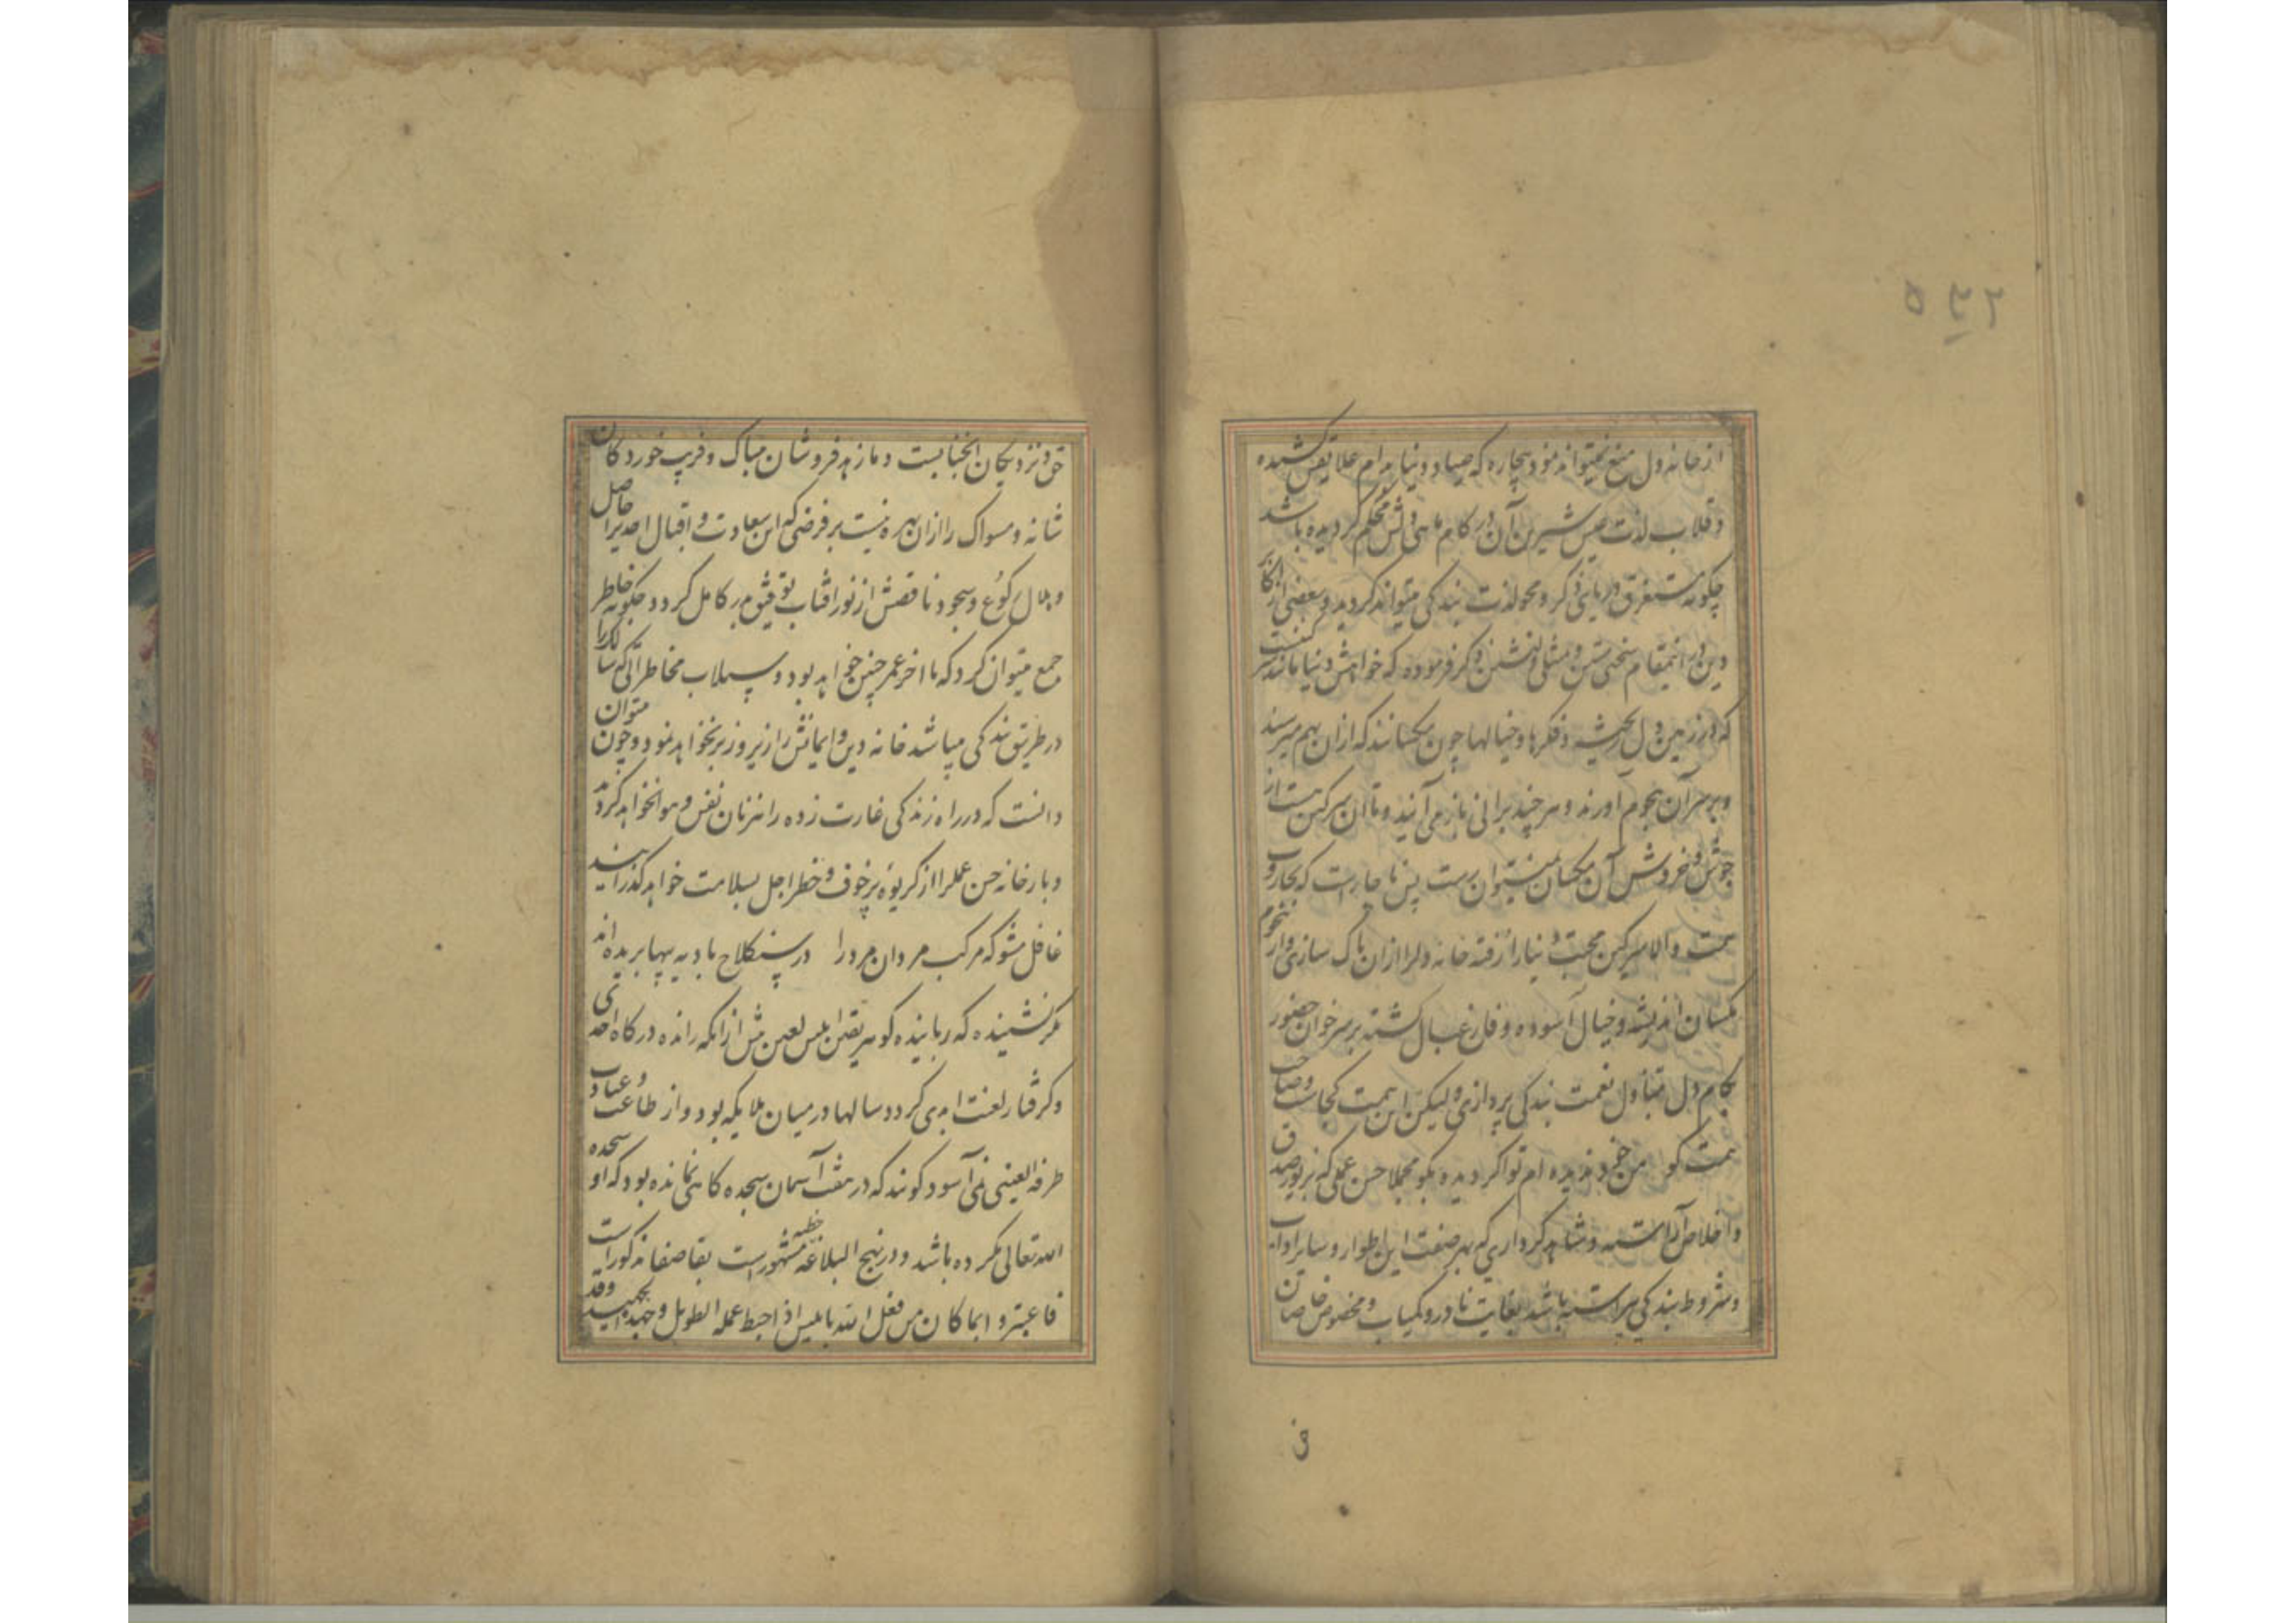 از خانه دل منع نمیتواند نمود بیچاره که صیاد دنیا بدام علایقش کشیده
و قلاب لذت عیش شیرین آن در کام ماهی دلش محکم گردیده باشد
چگونه مستغرق دریای ذکر و محو لذت بندگی میتواند گردید و بعضی از اکابر
دین در اینمقام سخنی متین و مثلی دلنشین ذکر فرموده که خواهش دنیا مانند
که در زمین دل ریخته و فکرها و خیالها چون مگسانند که از ان بهم میرسند
و بر سر آن هجوم آورند و هر چند برانی باز می آیند و تا ان سرگین هست از
جوش و خروش آن مگسان نمیتوان رست پس ناچار است که بجاروب
همت والا سرگین محبت دنیا را رفته خانه دلرا ازان پاک سازی و از هجوم
مگسان اندیشه و خیال آسوده و فارغبال گشته بر سر خوان حضور
بکام دل بتناول نعمت بندگی پردازی ولیکن این همت کجاست و صاحب
همت کو من خود ندیده ام تو اگر دیده بگو مجملا حسن عملی که بزیور صدق
و اخلاص آراسته و شاهد کرداری که بهر صفت این اطوار و سایر اداب
و شروط بندگی پیراسته باشد بغایت نادر و کمیاب و مخصوص خاصان
حق و نزدیکان انجنابست و ما زهد فروشان بیباک و فریب خوردکان
شانه و مسواک را ازان بهره نیست بر فرضی که این سعادت و اقبال احدیرا حاصل
و هلال رکوع و سجود ناقصش از نور افتاب توفیق بدر کامل گردد چگونه خاطر
جمع میتوان کرد که تا اخر عمر چنین خواهد بود و سیلاب مخاطراتی که سالک را
در طریق بندگی میباشد خانه دین و ایمانش را زیر و زبر نخواهد نمود و چون متوان
دانست که در راه زندگی غارت زده راهزنان نفس و هوا نخواهد گردید
و بارخانه حسن عملرا از کریوه پر خوف و خطر اجل بسلامت خواهد گذرانید
غافل مشو که مرکب مردان مرد را در سنگلاخ بادیه پیها بریده اند
مگر نشنیده که رباینده گوهر یقین ابلیس لعین پیش از انکه رانده درگاه احدی
و گرفتار لعنت ابدی گردد سالها در میان ملایکه بود و از طاعت و عبادت
طرفة العینی نمی آسود گویند که در هفت آسمان سجده گاهی نمانده بود که او سجده
الله تعالی نکرده باشد و در نهج البلاغه خطبه مشهور است بقاصعه مذکور است
فاعتبروا بما کان من فعل الله بابلیس اذ احبط عمله الطویل و جهده الجهید وقد